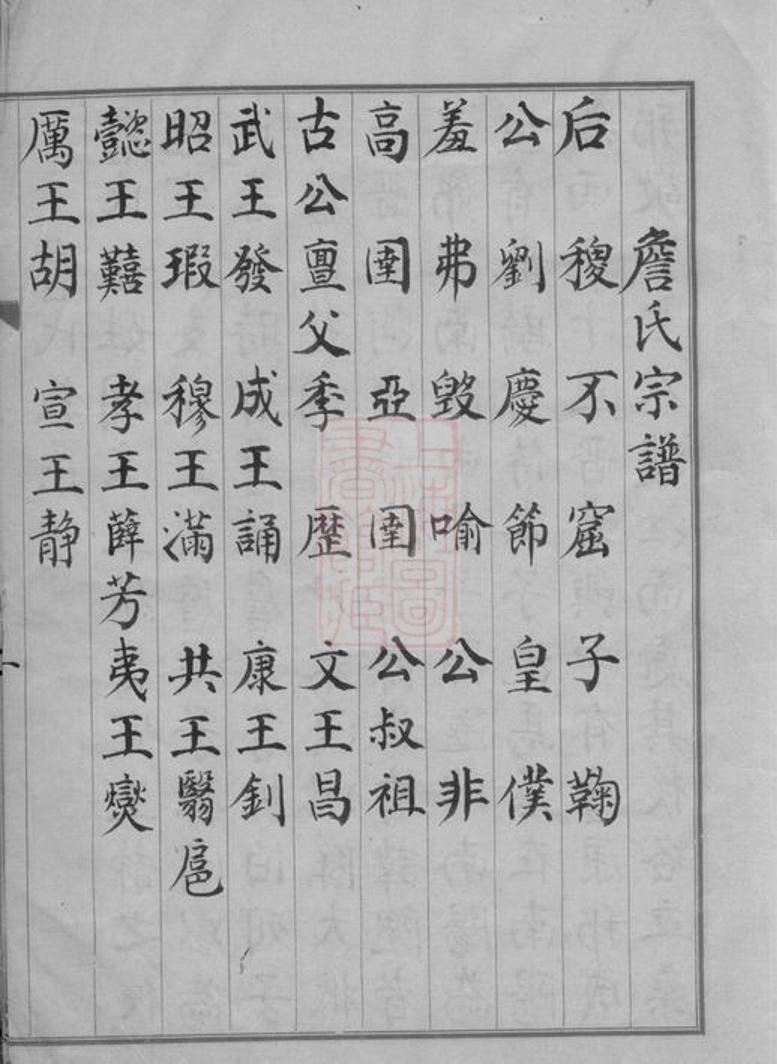 詹氏宗譜
后稷 不窋 子鞠
公劉 慶節 皇僕
羞弗 毀喻 公非
高圉 亞圉 公叔祖
古公亶父 季歷 文王昌
武王發 成王誦 康王釗
昭王瑕 穆王滿 共王翳扈
懿王囏 孝王薛芳 夷王燮
厲王胡 宣王静
上海圖書館藏